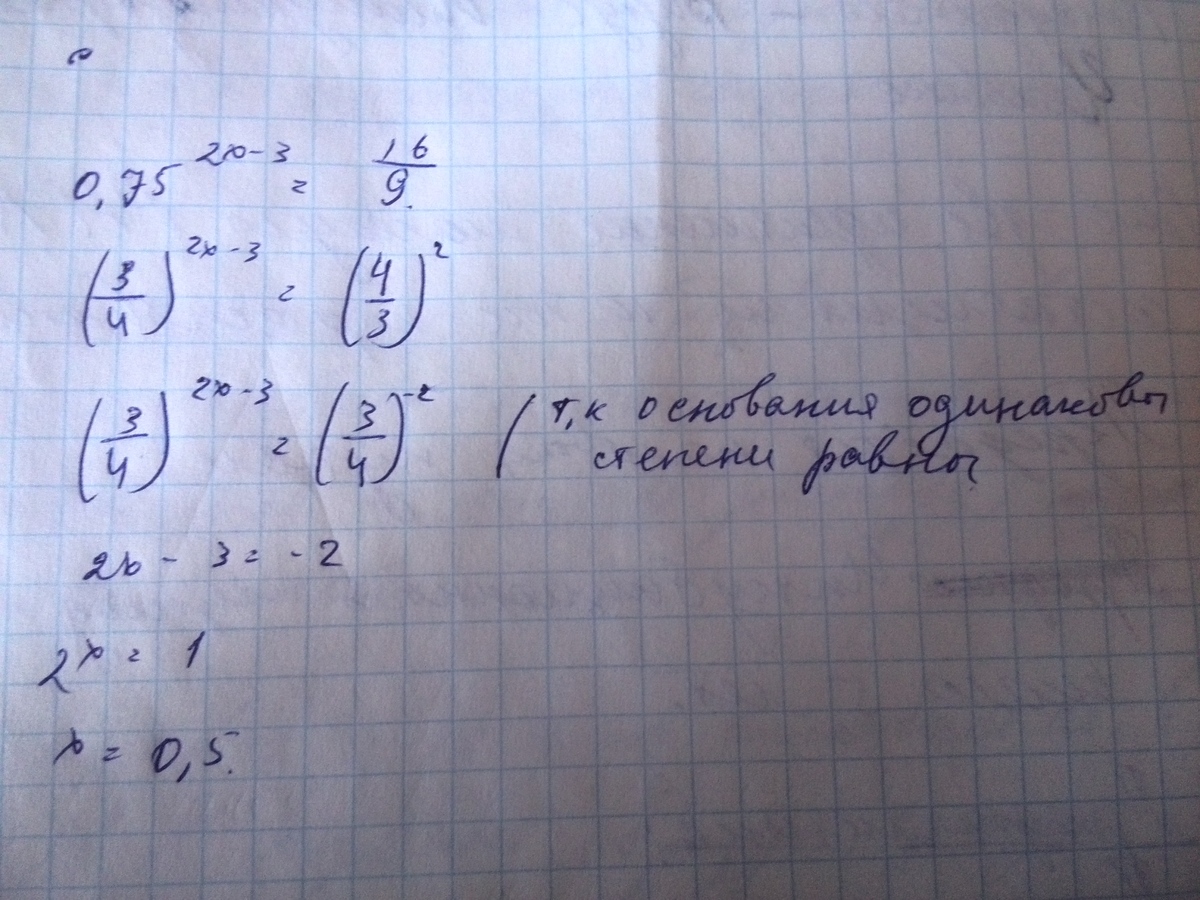 0,75^(2x-3) = 16/9.
(3/4)^(2x-3) = (4/3)^2
(3/4)^(2x-3) = (3/4)^(-2) ( т,к основания одинаковы
степени равны
2x - 3 = -2
2x = 1
x = 0,5.